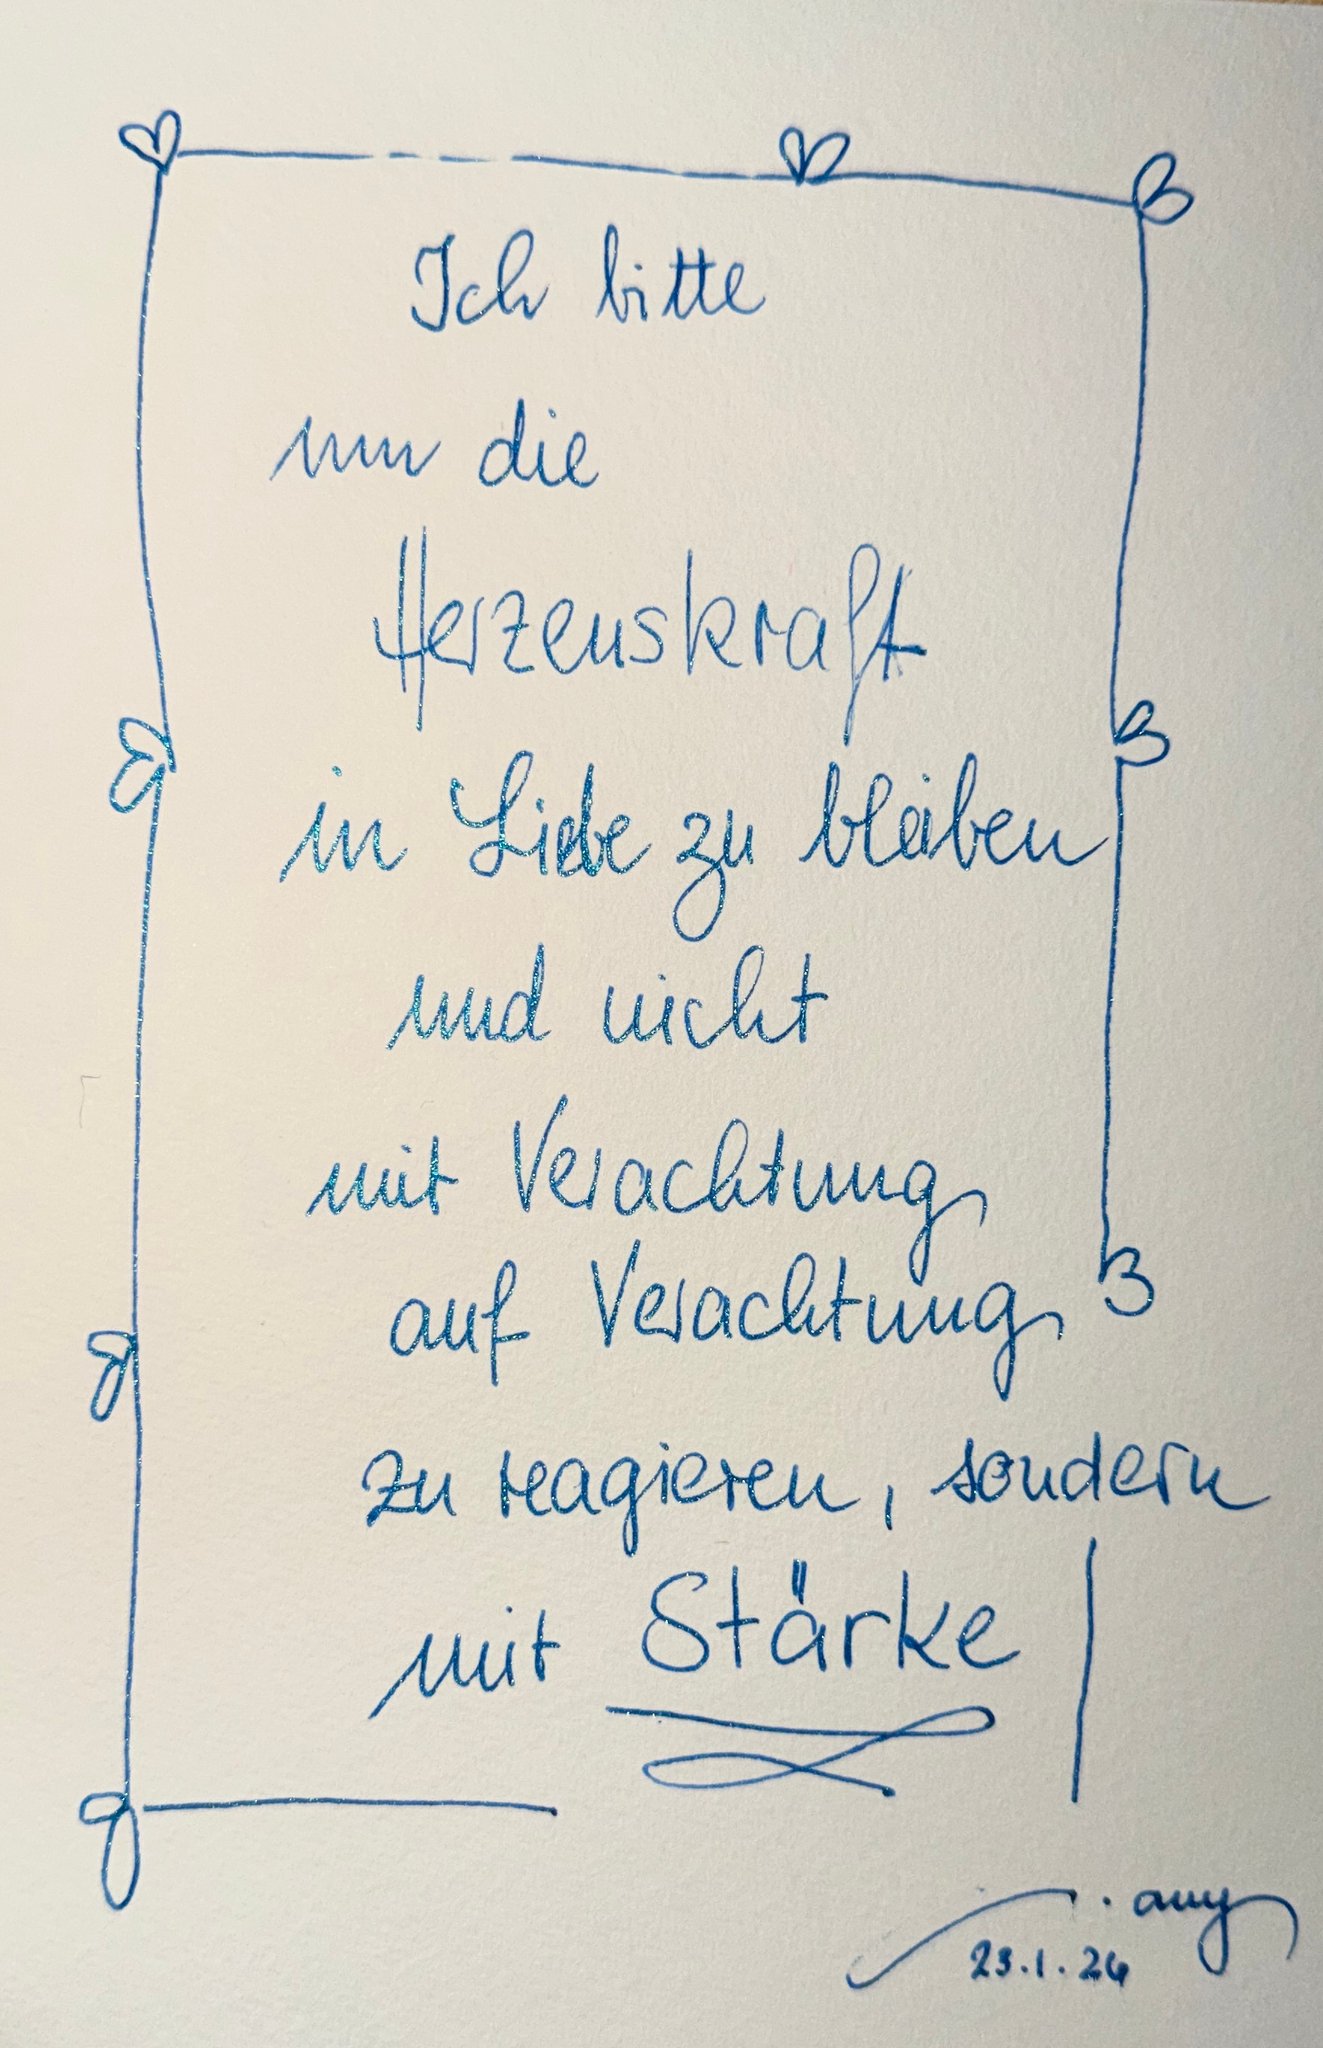 Ich bitte
um die
Herzenskraft
in Liebe zu bleiben
und nicht
mit Verachtung
auf Verachtung
zu reagieren, sondern
mit Stärke
23.1.26